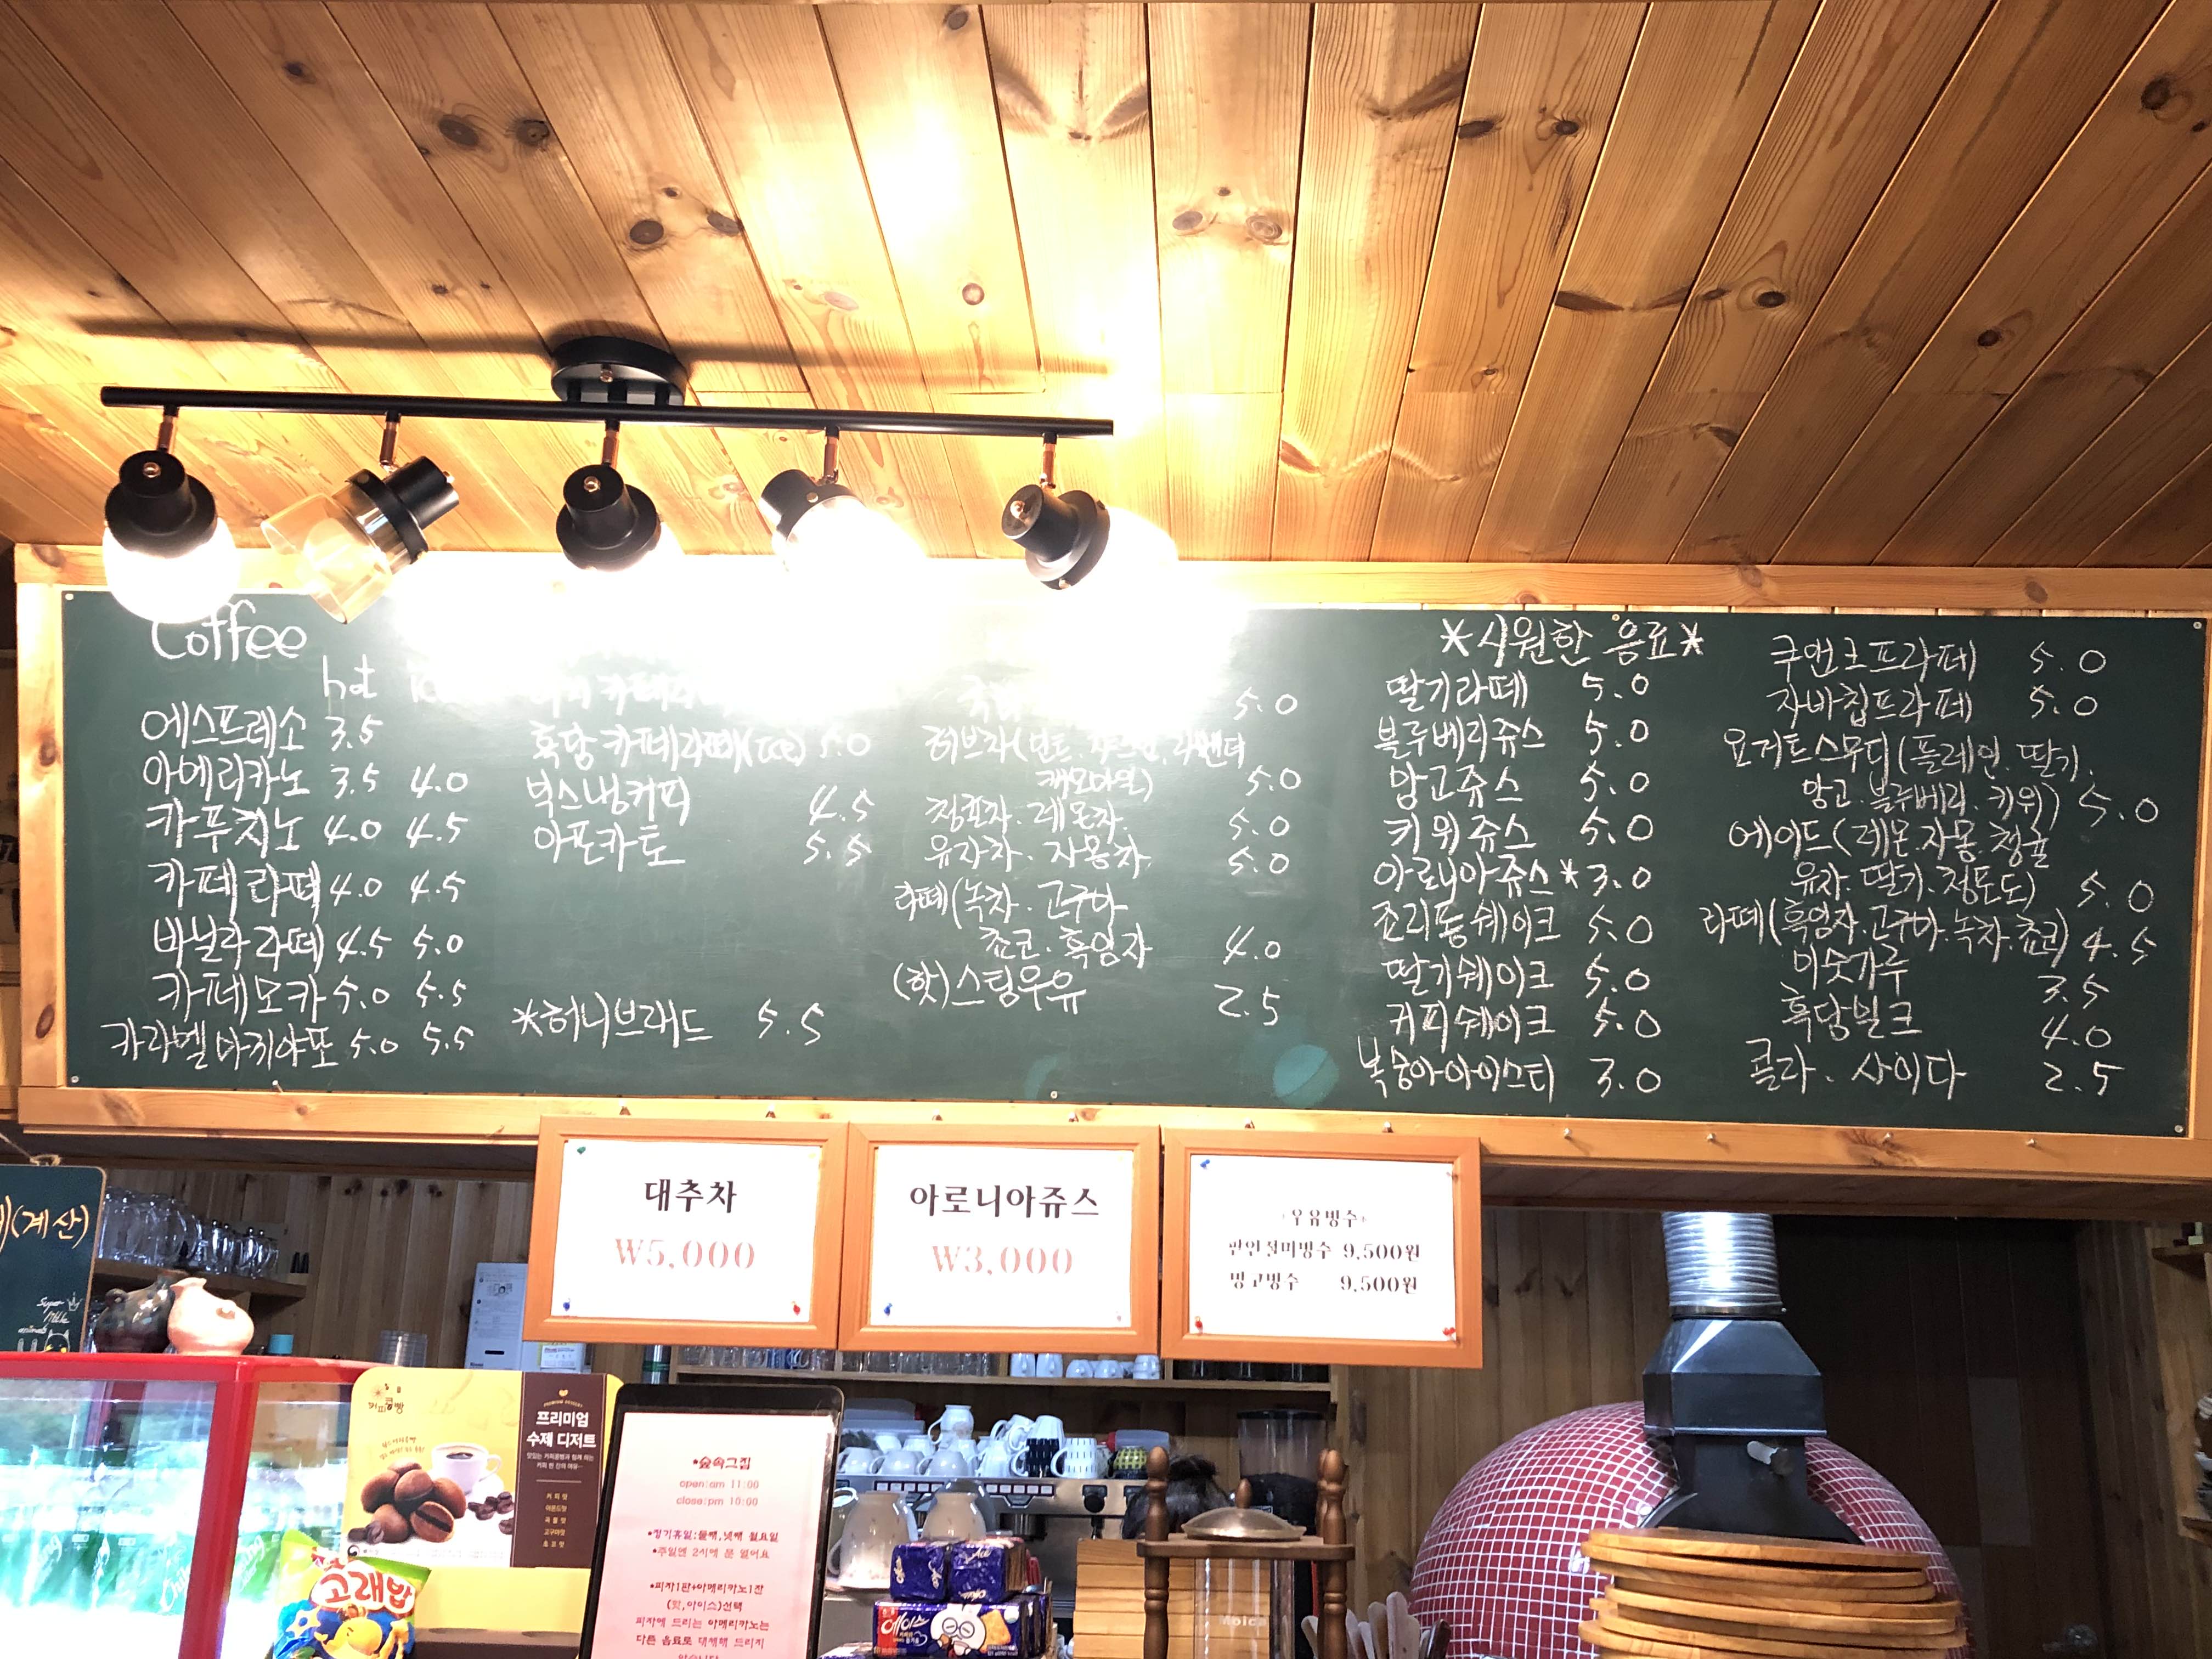 Coffee
hot
에스프레소 3.5
아메리카노 3.5 4.0
카푸치노 4.0 4.5
카페라떼 4.0 4.5
바닐라라떼 4.5 5.0
카페모카 5.0 5.5
카라멜마끼야또 5.0 5.5
흑당카페라떼(Ice) 5.0
빅스냉커피 4.5
아포카토 5.5
*허니브래드 5.5
5.0
허브차(민트.자스민.라벤더
캐모마일) 5.0
레몬차. 5.0
유자차. 자몽차. 5.0
라떼(녹차.고구마
쵸코.흑임자 4.0
(핫)스팀우유 2.5
*시원한 음료*
딸기라떼 5.0
블루베리쥬스 5.0
망고쥬스 5.0
키위쥬스 5.0
아로니아쥬스*3.0
죠리퐁쉐이크 5.0
딸기쉐이크 5.0
커피쉐이크 5.0
복숭아아이스티 3.0
쿠앤크프라페 5.0
자바칩프라페 5.0
요거트스무디(플레인.딸기.
망고.블루베리.키위) 5.0
에이드(레몬.자몽.청귤
유자.딸기.청포도) 5.0
라떼(흑임자.고구마.녹차.쵸코) 4.5
미숫가루 3.5
흑당밀크 4.0
콜라. 사이다 2.5
대추차
₩5,000
아로니아쥬스
₩3,000
*우유빙수*
팥인절미빙수 9,500원
망고빙수 9,500원
(계산)
Super
Milk
animals
커피콩빵
프리미엄
수제 디저트
맛있는 커피콩빵과 함께 하는
커피 한 잔의 여유...
커피맛
아몬드맛
고구마맛
초코맛
고래밥
*숲속그집
open:am 11:00
close:pm 10:00
*정기휴일:둘째,넷째 월요일
*주일엔 2시에 문 열어요
*피자1판+아메리카노1잔
(핫,아이스)선택
피자에 드리는 아메리카노는
다른 음료로 대체해 드리지
않습니다
에이스